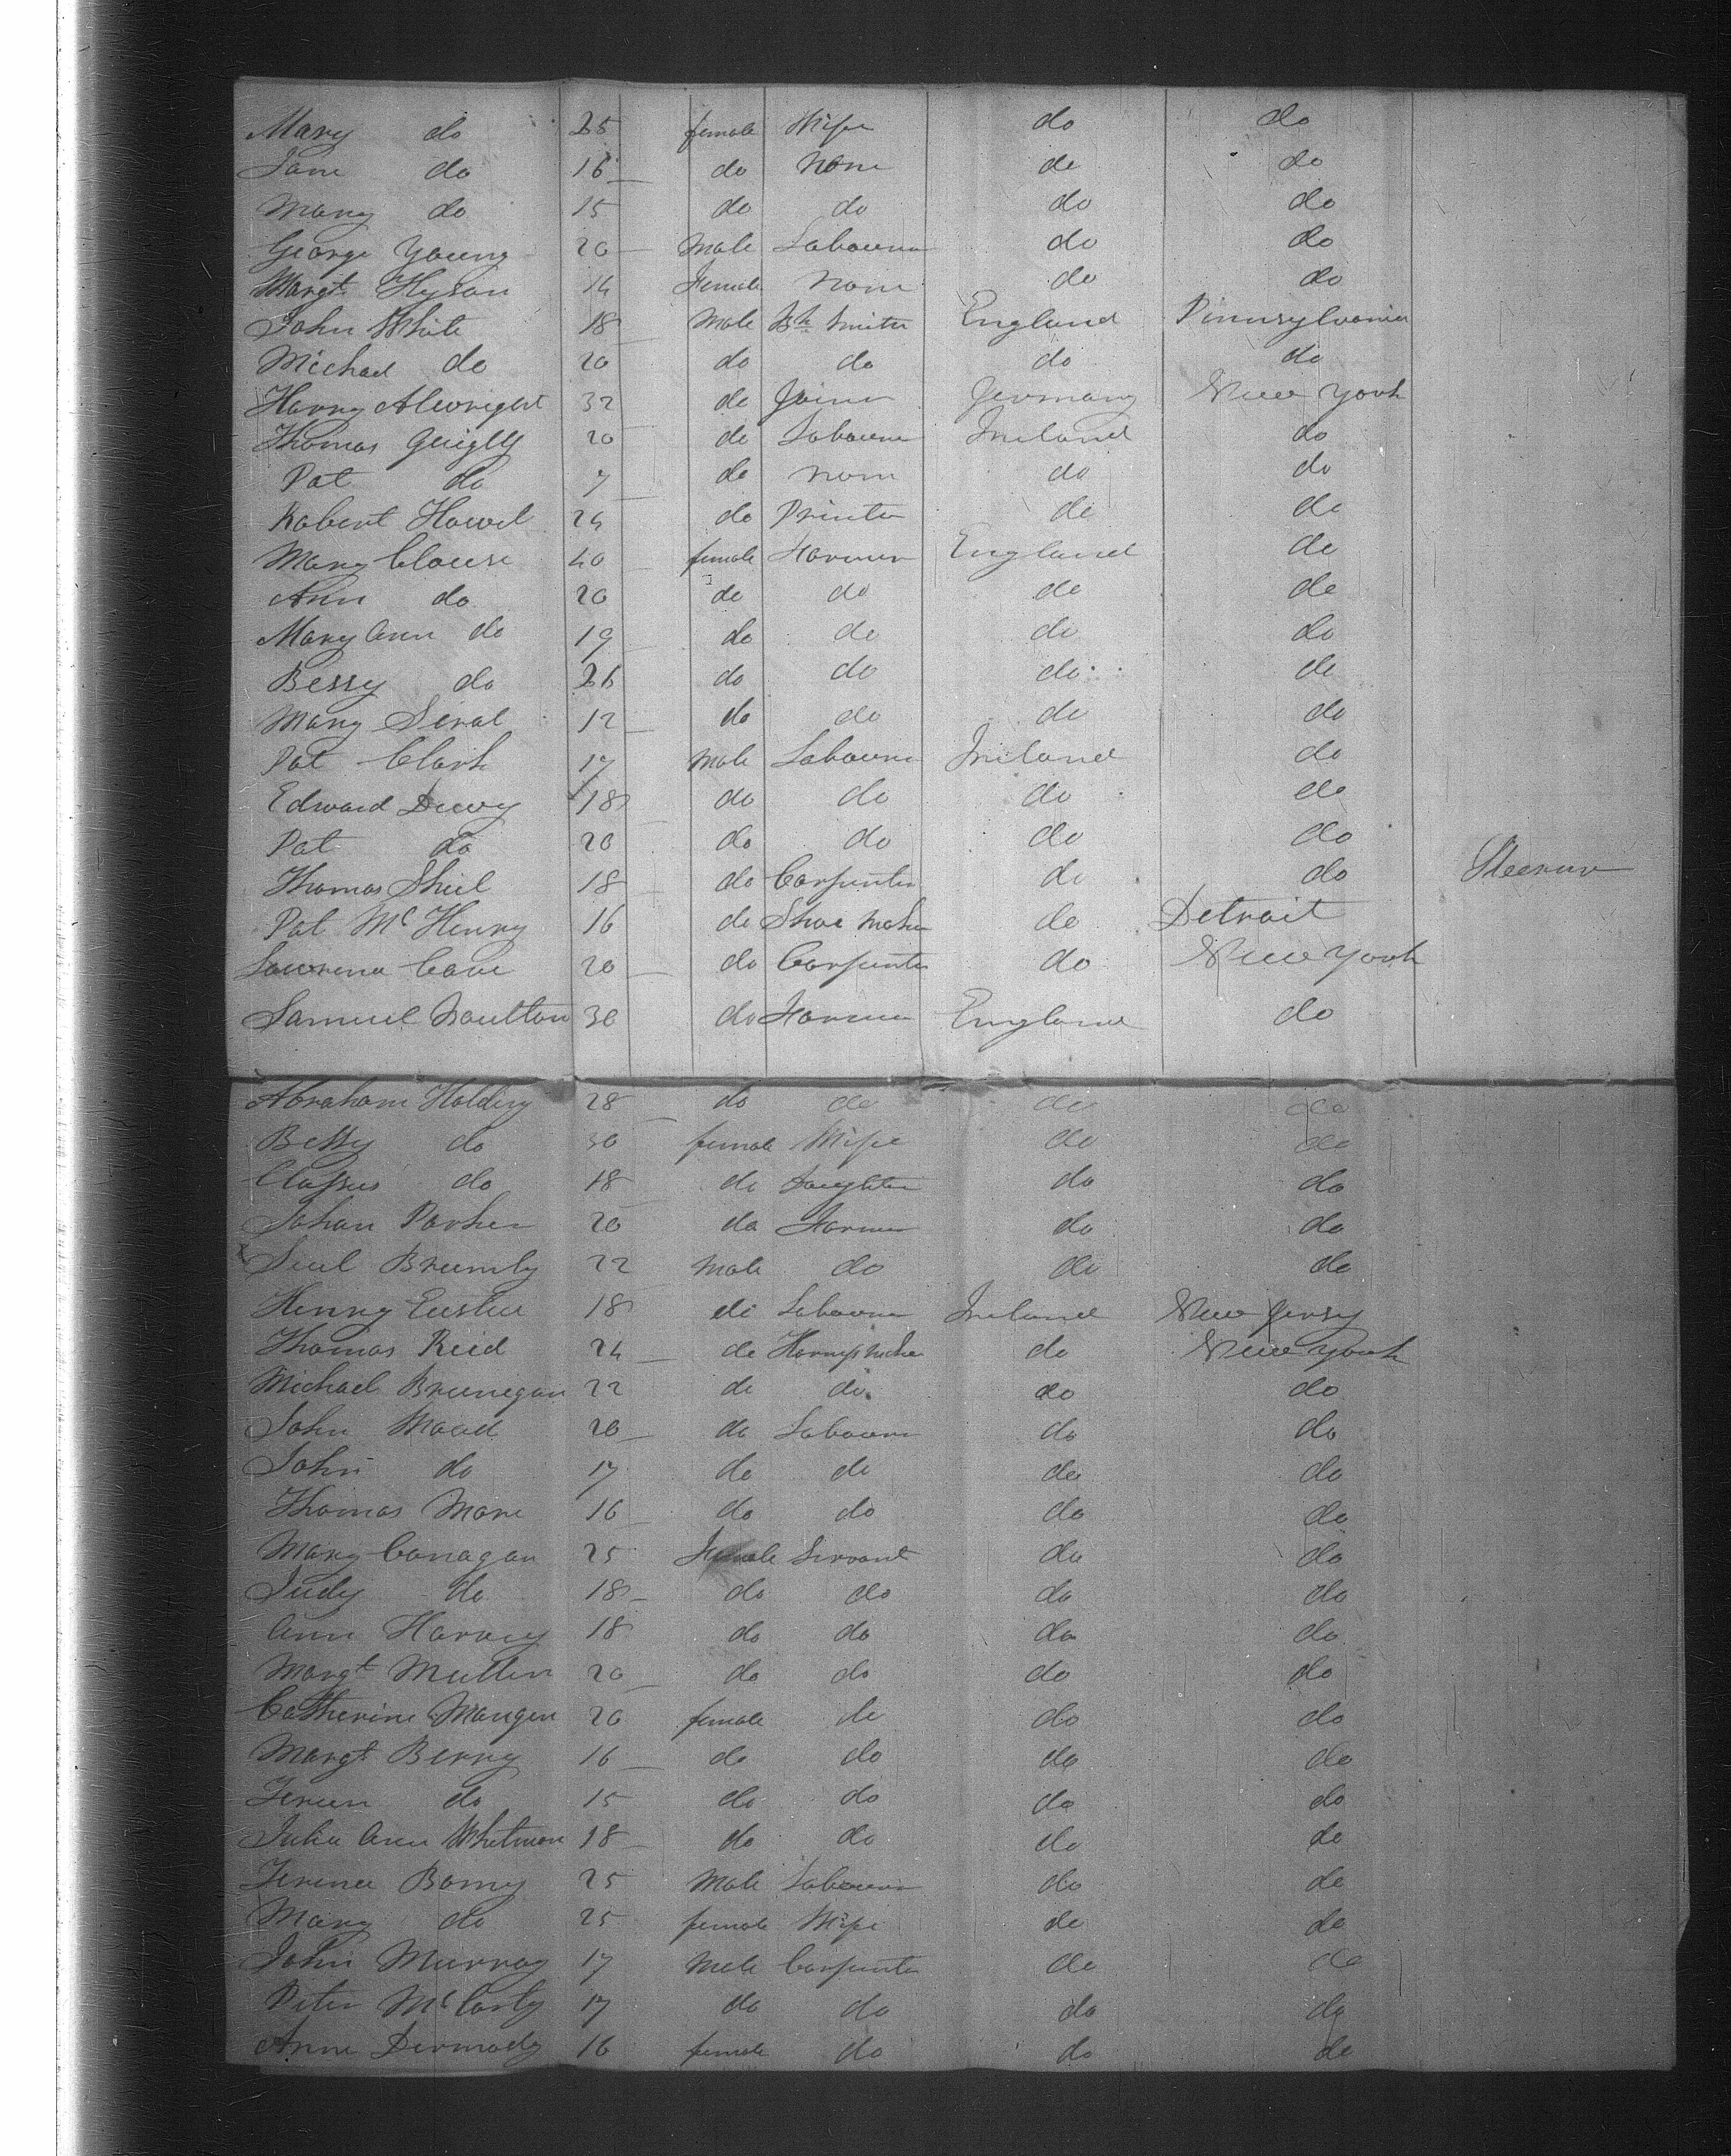 Mary do 25 female Wife do do
Jane do 16 do None do do
Mary do 15 do do do do
George Young 20 Male Labourer do do
Margt Hyson 14 Female None do do
John White 18 Male Bk Smith England Pinnsylvania
Michael do 20 do do do do
Harry Alwright 32 do Joiner Jermany New York
Thomas Quigly 20 do Labourer Ireland do
Pat do 7 do None do do
Robert Howel 24 do Printer do do
Mary Clouse 40 female Farmer England do
Ann do 20 do do do do
Mary Ann do 19 do do do do
Bessy do 26 do do do do
Mary 12 do do do do
Pat Clark 17 Male Labourer Ireland do
Edward 18 do do do do
Pat do 20 do do do do
Thomas Shiel 18 do Carpenter do do
Pat McHenry 16 do Shoe Maker do Detroit
Lawrence Cave 20 do Carpenter do New York
Samuel Moulton 30 do Farmer England do
Abraham Holding 28 do do do do
Bessy do 30 female Wife do do
do 18 do Daughter do do
Johan Parker 20 do Farmer do do
Brumly 22 Male do do do
Henry 18 do Labourer Ireland New Jersy
Thomas Reid 24 do do New York
Michael Brunegan 22 do do do do
John Wood 20 do Labourer do do
John do 17 do do do do
Thomas More 16 do do do do
Mary Conagan 25 Female Servant do do
Judy do 18 do do do do
Ann Harvey 18 do do do do
Margt Mullen 20 do do do do
Catherine Mangen 20 female do do do
Margt Berry 16 do do do do
do 15 do do do do
Julia Ann Whitmon 18 do do do do
Terence 25 Male Labourer do do
Mary do 25 female Wife do do
John Murray 17 Male Carpenter do do
Peter McCarty 17 do do do do
Anne Dermody 16 female do do do